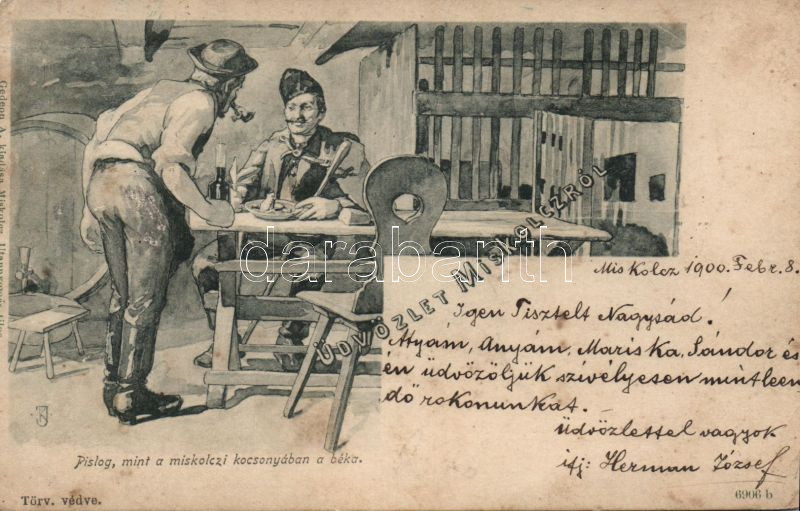 Gedeon A. kiadása Miskolcz. Utánnyomás tilos
ÜDVÖZLET MISKOLCZRÓL
darabanth
Miskolcz 1900. Febr. 8.
Igen Tisztelt Nagysád!
Atyám, Anyám, Mariska, Sándor és
én üdvözöljük szivélyesen mintleen
dő rokonunkat.
Üdvözlettel vagyok
ifj: Herman József
Pislog, mint a miskolczi kocsonyában a béka.
Törv. védve.
6906 b